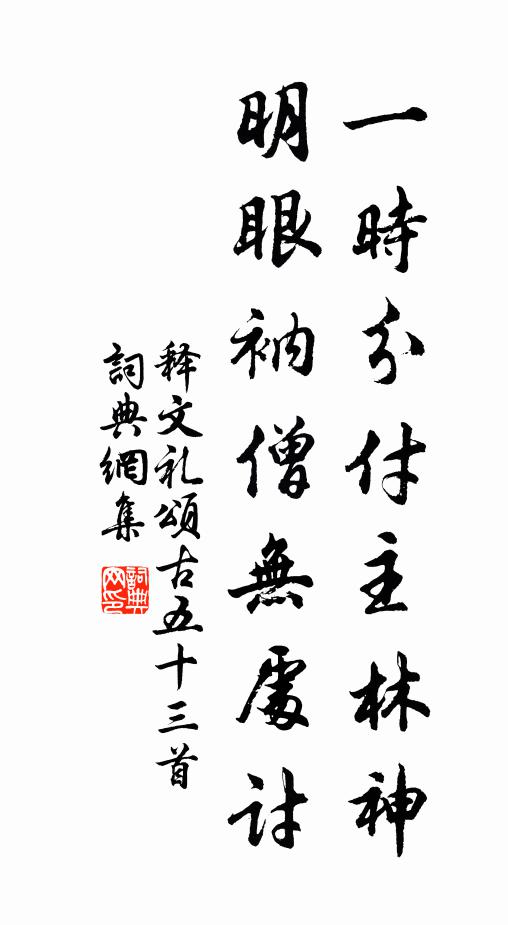 一時分付主林神
明眼衲僧無處討
释文礼頌古五十三首
詞典網集
詞典網印